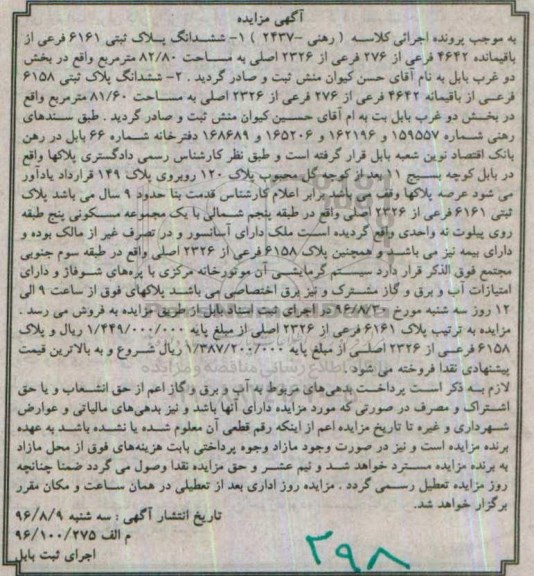 آگهی مزایده
به موجب پرونده اجرائی کلاسه ( رهنی -۲۴۳۷ ) ۱- ششدانگ پلاک ثبتی ۶۱۶۱ فرعی از
باقیمانده ۴۶۴۲ فرعی از ۲۷۶ فرعی از ۲۳۲۶ اصلی به مساحت ۸۲/۸۰ مترمربع واقع در بخش
دو غرب بابل به نام آقای حسن کیوان منش ثبت و صادر گردید . ۲- ششدانگ پلاک ثبتی ۶۱۵۸
فرعی از باقیمانه ۴۶۴۲ فرعی از ۲۷۶ فرعی از ۲۳۲۶ اصلی به مساحت ۸۱/۶۰ مترمربع واقع
در بخش دو غرب بابل بت به ام آقای حسین کیوان منش ثبت و صادر گردید . طبق سندهای
رهنی شماره ۱۵۹۵۵۷ و ۱۶۲۱۹۶ و ۱۶۵۲۰۶ و ۱۶۸۶۸۹ دفترخانه شماره ۶۶ بابل در رهن
بانک اقتصاد نوین شعبه بابل قرار گرفته است و طبق نظر کارشناس رسمی دادگستری پلاکها واقع
در بابل کوچه بسیج ۱۱ بعد از کوچه گل محبوب پلاک ۱۲۰ روبروی پلاک ۱۴۹ قرارداد یادآور
می شود عرصه پلاکها وقف می باشد برابر اعلام کارشناس قدمت بنا حدود ۹ سال می باشد پلاک
ثبتی ۶۱۶۱ فرعی از ۲۳۲۶ اصلی واقع در طبقه پنجم شمالی با یک مجموعه مسکونی پنج طبقه
روی پیلوت نه واحدی واقع گردیده است ملک دارای آسانسور و در تصرف غیر از مالک بوده و
دارای بیمه نیز می باشد و همچنین پلاک ۶۱۵۸ فرعی از ۲۳۲۶ اصلی واقع در طبقه سوم جنوبی
مجتمع فوق الذکر قرار دارد سیستم گرمایشی آن موتورخانه مرکزی با پره‌های شوفاژ و دارای
امتیازات آب و برق و گاز مشترک و نیز برق اختصاصی می باشد پلاکهای فوق از ساعت ۹ الی
۱۲ روز سه شنبه مورخ ۹۶/۸/۳۰ در اجرای ثبت اسناد بابل از طریق مزایده به فروش می رسد .
مزایده به ترتیب پلاک ۶۱۶۱ فرعی از ۲۳۲۶ اصلی از مبلغ پایه ۱/۴۴۹/۰۰۰/۰۰۰ ریال و پلاک
۶۱۵۸ فرعی از ۲۳۲۶ اصلی از مبلغ پایه ۱/۳۸۷/۲۰۰/۰۰۰ ریال شروع و به بالاترین قیمت
پیشنهادی نقدا فروخته می شود.
لازم به ذکر است پرداخت بدهی‌های مربوط به آب و برق و گاز اعم از حق انشعاب و یا حق
اشتراک و مصرف در صورتی که مورد مزایده دارای آنها باشد و نیز بدهی‌های مالیاتی و عوارض
شهرداری و غیره تا تاریخ مزایده اعم از اینکه رقم قطعی آن معلوم شده یا نشده باشد به عهده
برنده مزایده است و نیز در صورت وجود مازاد وجوه پرداختی بابت هزینه‌های فوق از محل مازاد
به برنده مزایده مسترد خواهد شد و نیم عشر و حق مزایده نقدا وصول می گردد ضمنا چنانچه
روز مزایده تعطیل رسمی گردد . مزایده روز اداری بعد از تعطیلی در همان ساعت و مکان مقرر
برگزار خواهد شد.
تاریخ انتشار آگهی : سه شنبه ۹۶/۸/۹
م الف ۹۶/۱۰۰/۲۷۵
اجرای ثبت بابل
۳۹۸